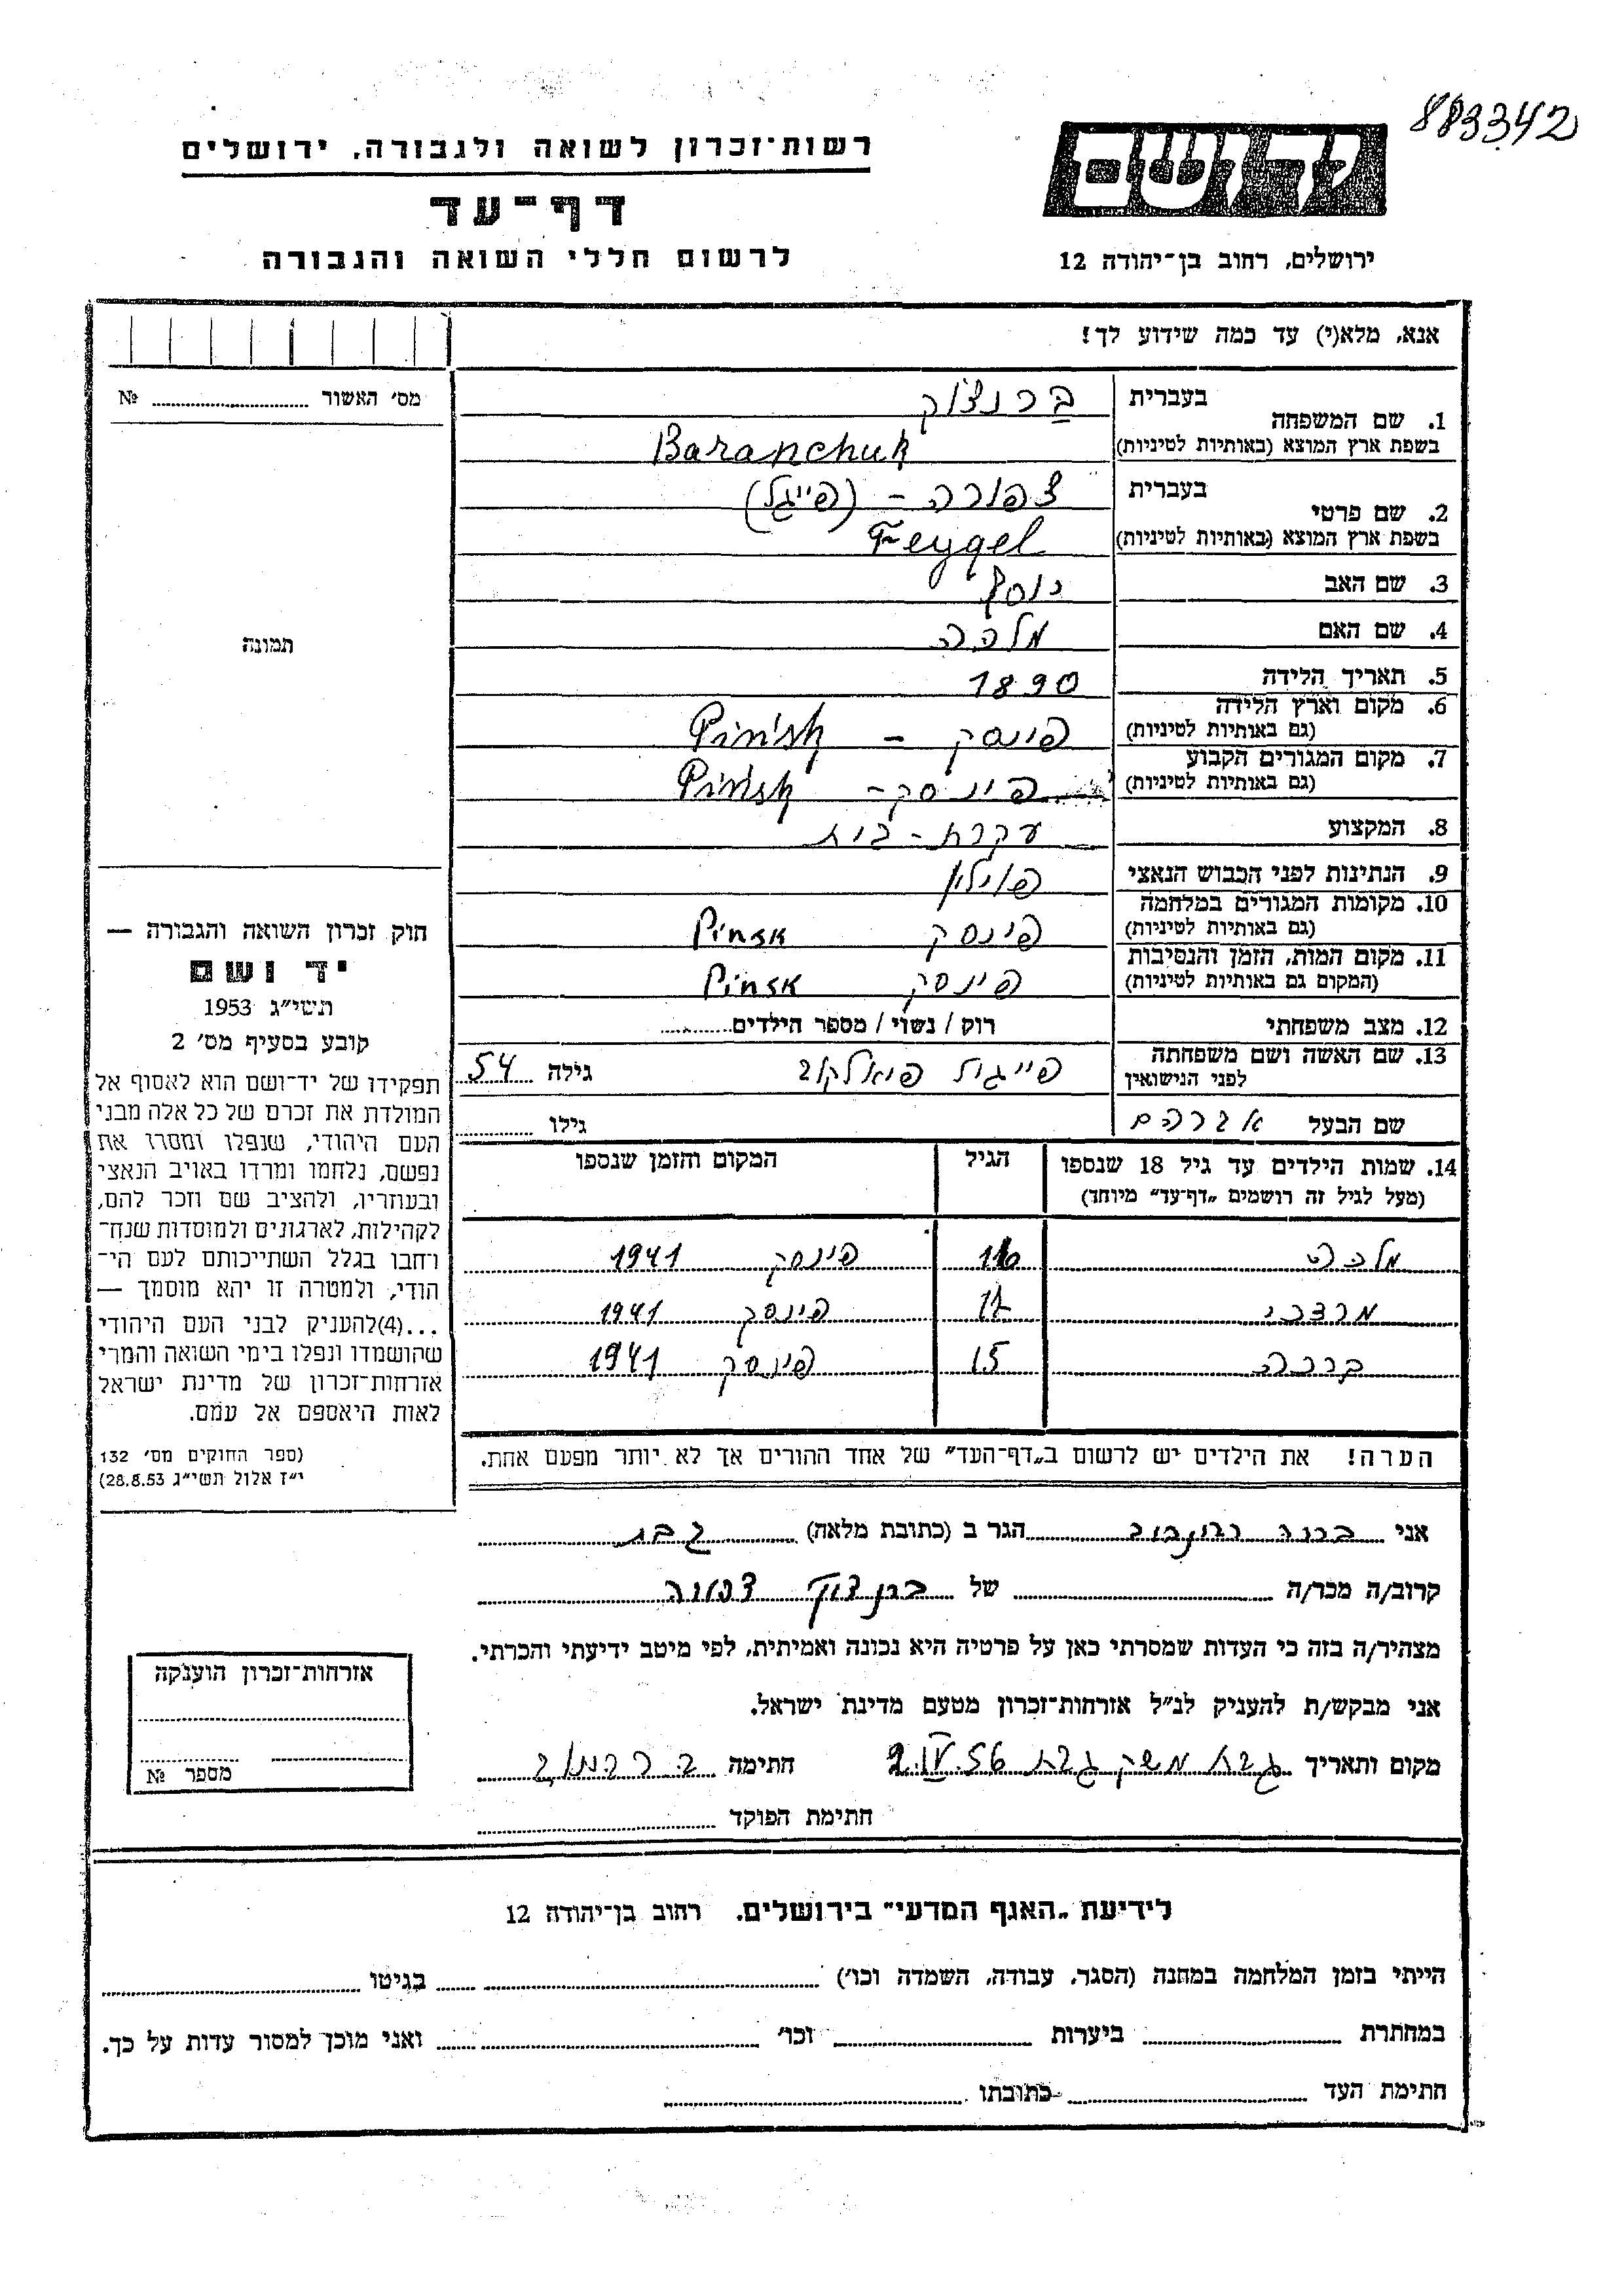 883342
רשות־זכרון לשואה ולגבורה, ירושלים
יד ושם
דף־עד
לרשום חללי השואה והגבורה
ירושלים, רחוב בן־יהודה 12
אנא, מלא(י) עד כמה שידוע לך!
מס׳ האשור № 
1. שם המשפחה בעברית ברנצ׳וק
בשפת ארץ המוצא (באותיות לטיניות) Baranchuk
2. שם פרטי בעברית צפורה – (פייגל)
בשפת ארץ המוצא (באותיות לטיניות) Feygel
3. שם האב יוסף
4. שם האם מלכה
5. תאריך הלידה 1890
6. מקום וארץ הלידה (גם באותיות לטיניות) פינסק – Pinsk
7. מקום המגורים הקבוע (גם באותיות לטיניות) פינסק – Pinsk
8. המקצוע עקרת-בית
9. הנתינות לפני הכבוש הנאצי פוילין
10. מקומות המגורים במלחמה (גם באותיות לטיניות) פינסק Pinsk
11. מקום המות, הזמן והנסיבות (המקום גם באותיות לטיניות) פינסק Pinsk
12. מצב משפחתי רוק / נשוי / מספר הילדים
13. שם האשה ושם משפחתה לפני הנישואין פייגול גילה 54
שם הבעל אברהם גילו
תמונה
חוק זכרון השואה והגבורה —
יד ושם
תשי״ג 1953
קובע בסעיף מס׳ 2
תפקידו של יד־ושם הוא לאסוף אל
המולדת את זכרם של כל אלה מבני
העם היהודי, שנפלו ומסרו את
נפשם, נלחמו ומרדו באויב הנאצי
ובעוזריו, ולהציב שם וזכר להם,
לקהילות, לארגונים ולמוסדות שנח־
רחבו בגלל השתייכותם לעם הי־
הודי, ולמטרה זו יהא מוסמך —
...(4)להעניק לבני העם היהודי
שהושמדו ונפלו בימי השואה והמרי
אזרחות־זכרון של מדינת ישראל
לאות היאספם אל עמם.
(ספר החוקים מס׳ 132
י״ז אלול תשי״ג 28.8.53)
14. שמות הילדים עד גיל 18 שנספו הגיל המקום והזמן שנספו
(מעל לגיל זה רושמים „דף־עד״ מיוחד)
פינסק 1941
מרדכי פינסק 1941
ברכה 15 פינסק 1941
הערה! את הילדים יש לרשום ב„דף־העד״ של אחד ההורים אך לא יותר מפעם אחת.
אני הגר ב (כתובת מלאה) גבת
קרוב/ה מכר/ה של ברנצוק צפורה
מצהיר/ה בזה כי העדות שמסרתי כאן על פרטיה היא נכונה ואמיתית, לפי מיטב ידיעתי והכרתי.
אני מבקש/ת להעניק לנ״ל אזרחות־זכרון מטעם מדינת ישראל.
מקום ותאריך גבת משק גבת 2.IV.56 חתימה
חתימת הפוקד
אזרחות־זכרון הוענקה
מספר №
לידיעת „האגף המדעי״ בירושלים, רחוב בן־יהודה 12
הייתי בזמן המלחמה במחנה (הסגר, עבודה, השמדה וכו׳) בגיטו
במחתרת ביערות וכו׳ ואני מוכן למסור עדות על כך.
חתימת העד כתובתו